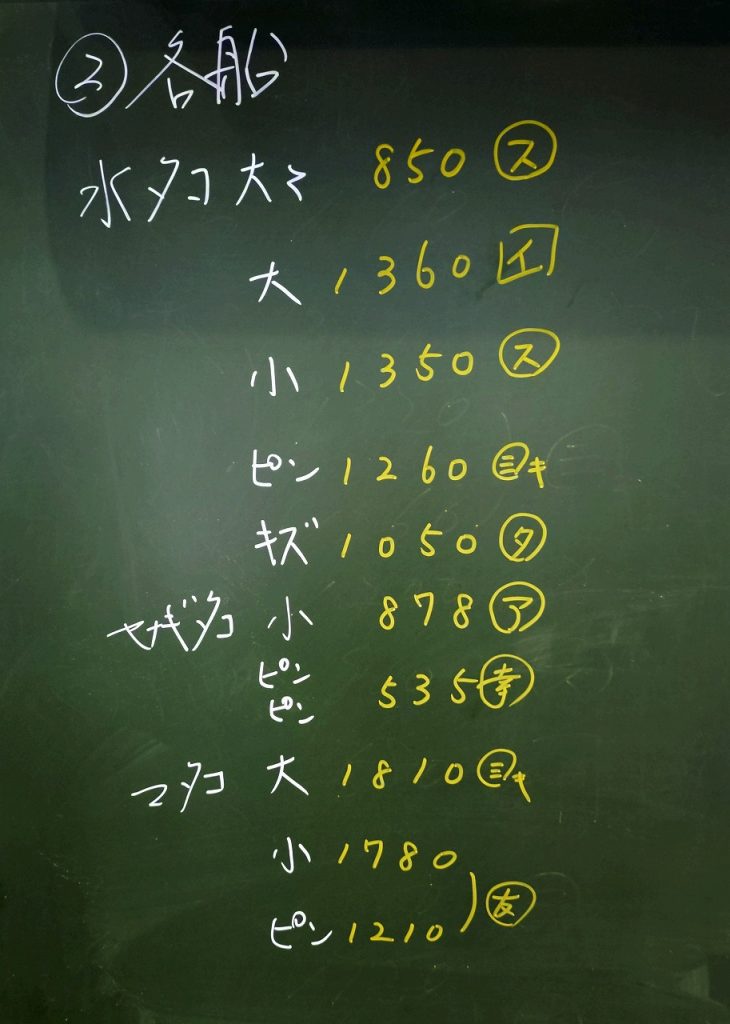 ②各船
水タコ 大々 850 ス
大 1360 イ
小 1350 ス
ピン 1260 ミキ
キズ 1050 タ
ヤナギダコ 小 878 ア
ピンピン 535 幸
マダコ 大 1810 ミキ
小 1780
ピン 1210 友